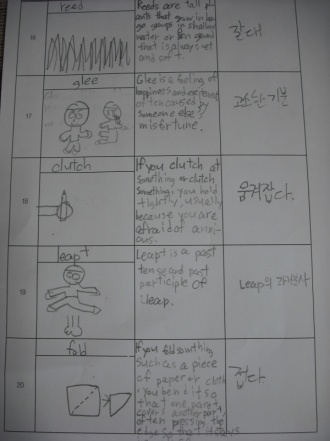 16
reed
Reeds are tall pl
ants that grow in lar
ge groups in shallow
water or on ground
that is always wet
and soft.
갈대
17
glee
Glee is a feeling of
happiness and excitement
often caused by
someone else's
misfortune.
기분
18
clutch
If you clutch at
something or clutch
something, you hold
tightly, usually
because you are
afraid or anxi-
ous.
움켜잡다.
19
leapt
Leapt is a past
tense and past
participle of
leap.
Leap의 과거분사
20
fold
If you fold something
such as a piece
of paper or cloth
, you bend it so
that one part
covers another part,
often pressing the
edge so that it stays
접다